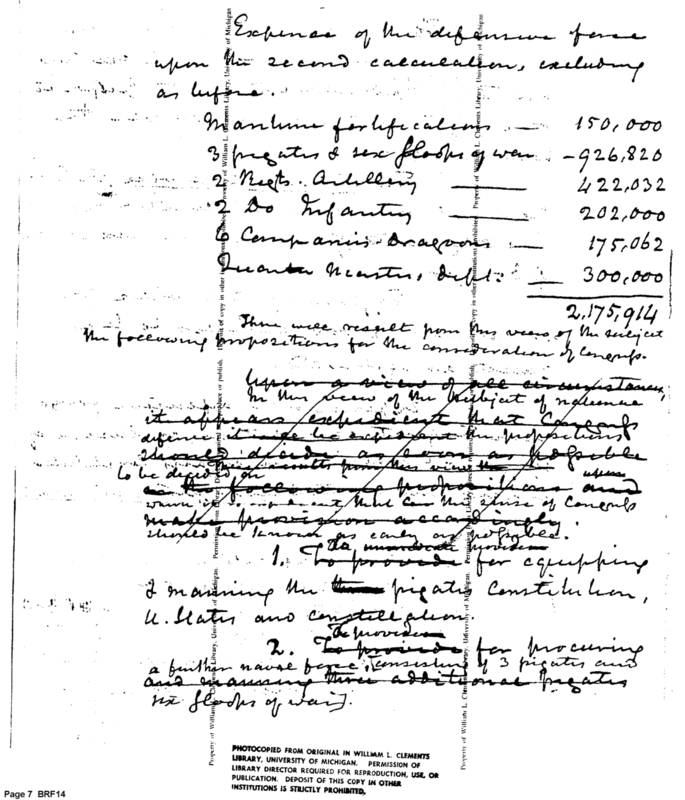 Expense of the defensive force
upon the second calculation, excluding
as before.
Maritime fortifications — 150,000
3 frigates & six sloops of war — 926,820
2 Regts. Artillery — 422,032
2 Do Infantry — 202,000
6 Companies Dragoons — 175,062
Quarter Master, dept. — 300,000
2,175,914
There will result from this view of the subject
the following propositions for the consideration of Congress.
Upon a view of all circumstances,
In this view of the subject of
it appears expedient that Congress
the propositions
should decide as soon as possible
to be decided on
in the following propositions and
the sense of Congress
make provision accordingly.
should be known as early as possible.
provision
1. To provide for equipping
& manning the frigates Constitution,
U. States and Constellation.
To provide
2. To provide for procuring
a further naval force, [consisting of 3 frigates and
and manning three additional frigates
six sloops of war].
Property of William L. Clements Library, University of Michigan.
PHOTOCOPIED FROM ORIGINAL IN WILLIAM L. CLEMENTS
LIBRARY, UNIVERSITY OF MICHIGAN. PERMISSION OF
LIBRARY DIRECTOR REQUIRED FOR REPRODUCTION, USE, OR
PUBLICATION. DEPOSIT OF THIS COPY IN OTHER
INSTITUTIONS IS STRICTLY PROHIBITED.
Page 7 BRF14